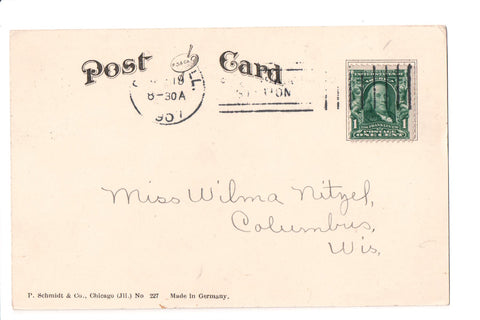 Post Card
19
8-30A
1907
ILL.
STATION
1 1
POSTAGE
ONE CENT
Miss Wilma Nitzel,
Columbus,
Wis.
P. Schmidt & Co., Chicago (Jll.) No 227 Made in Germany.